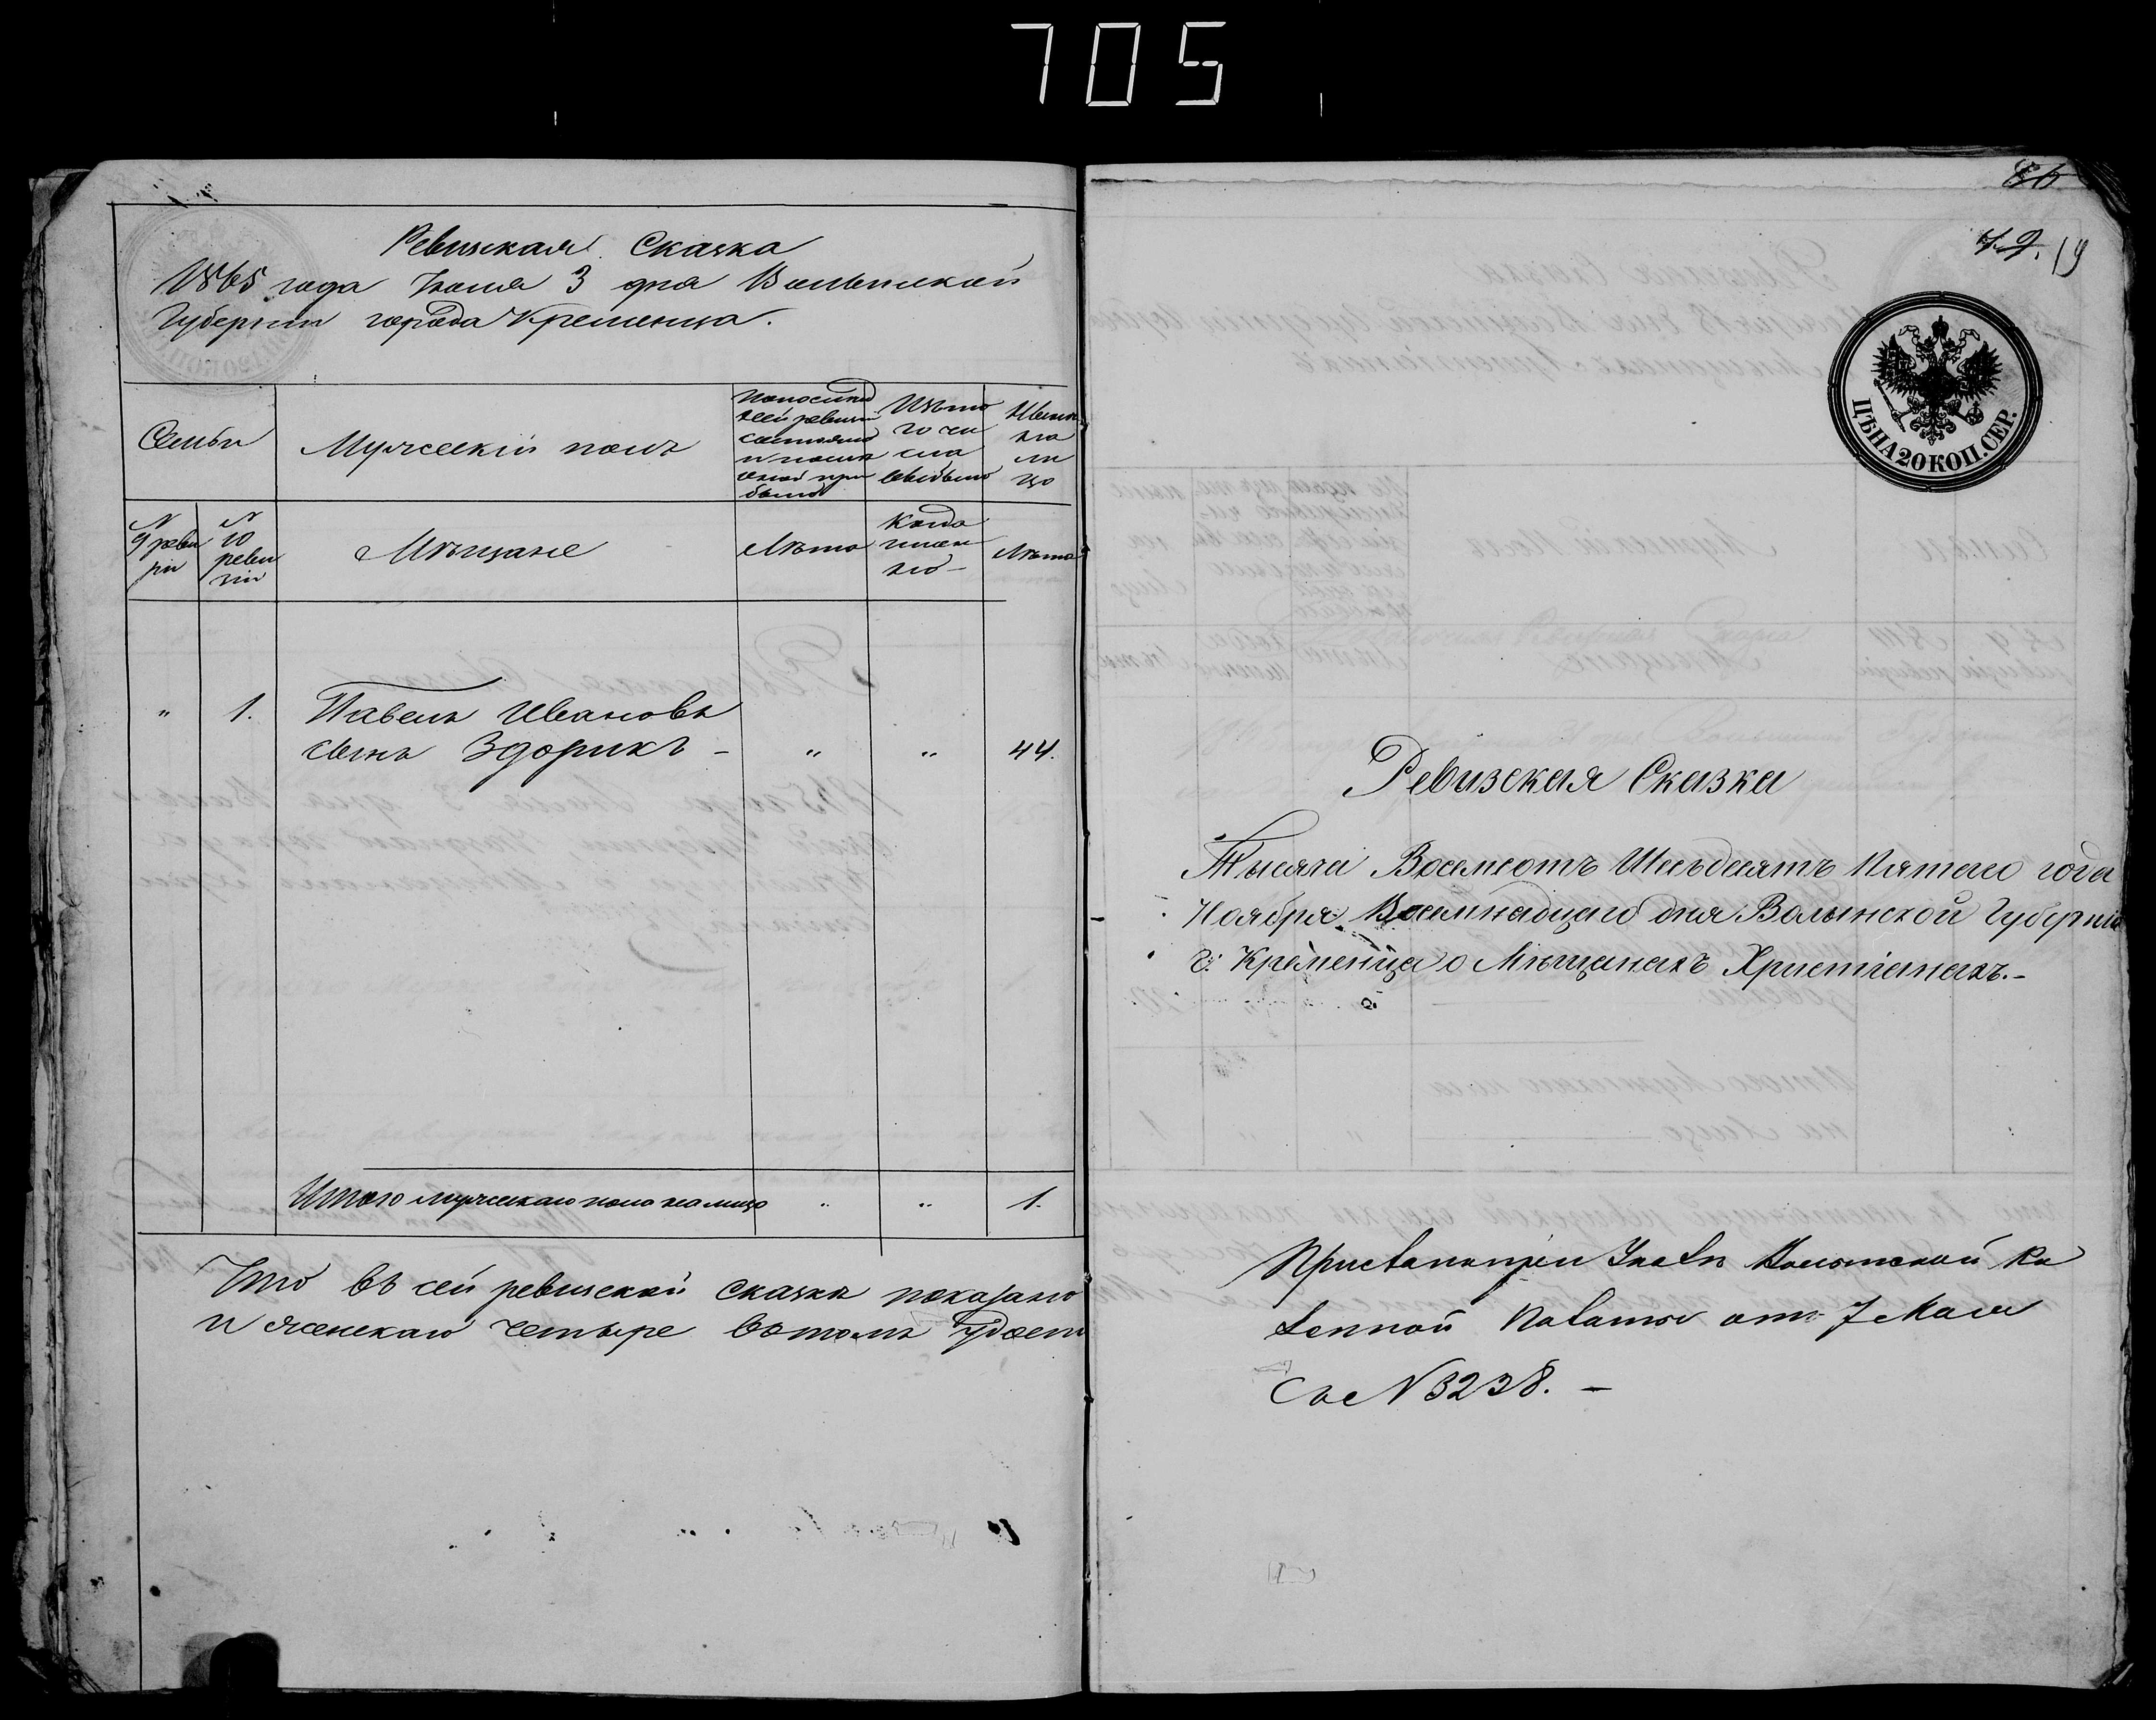 705
Ревизкая Сказка
1865 года Іюля 3 дня Волынской
Губерніи города Кременца.
Семьи
Мужескій полъ
По последней ревизіи состояло и после оной прибыло
Изъ того числа выбыло
Ныне на лицо
№ 9 ревизіи
№ 10 ревизіи
Мѣщане
Лѣта
Когда именно
Лѣта
" 1. Павелъ Ивановъ
сынъ Здорикъ - " " 44.
Итого мужескаго пола на лицо " " 1.
Что въ сей ревизской сказкѣ показано
и женскаго четыре въ томъ
86
72. 19
ЦѢНА 20 КОП. СЕР.
Ревизская Сказка
Тысяча Восемсотъ Шесьдесятъ Пятаго года
Ноября Восемнадцаго дня Волынской Губерніи
г. Кременца о Мѣщанахъ Христіанахъ.-
При Волынской Ка
зенной Палаты отъ 7 Мая
За № 3238. -